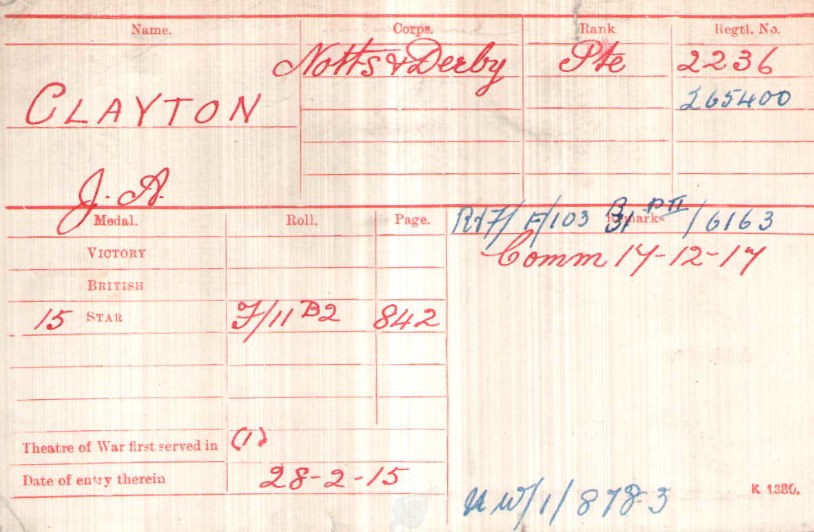 Name. Corps. Rank Regtl. No.
Notts & Derby Pte 2236
CLAYTON 265400
J. A.
Medal. Roll. Page. Remarks
F/103 /6163
VICTORY Comm 17-12-17
BRITISH
15 STAR F/11 B2 842
Theatre of War first served in (1)
Date of entry therein 28-2-15
NW/1/8783 K 1380.